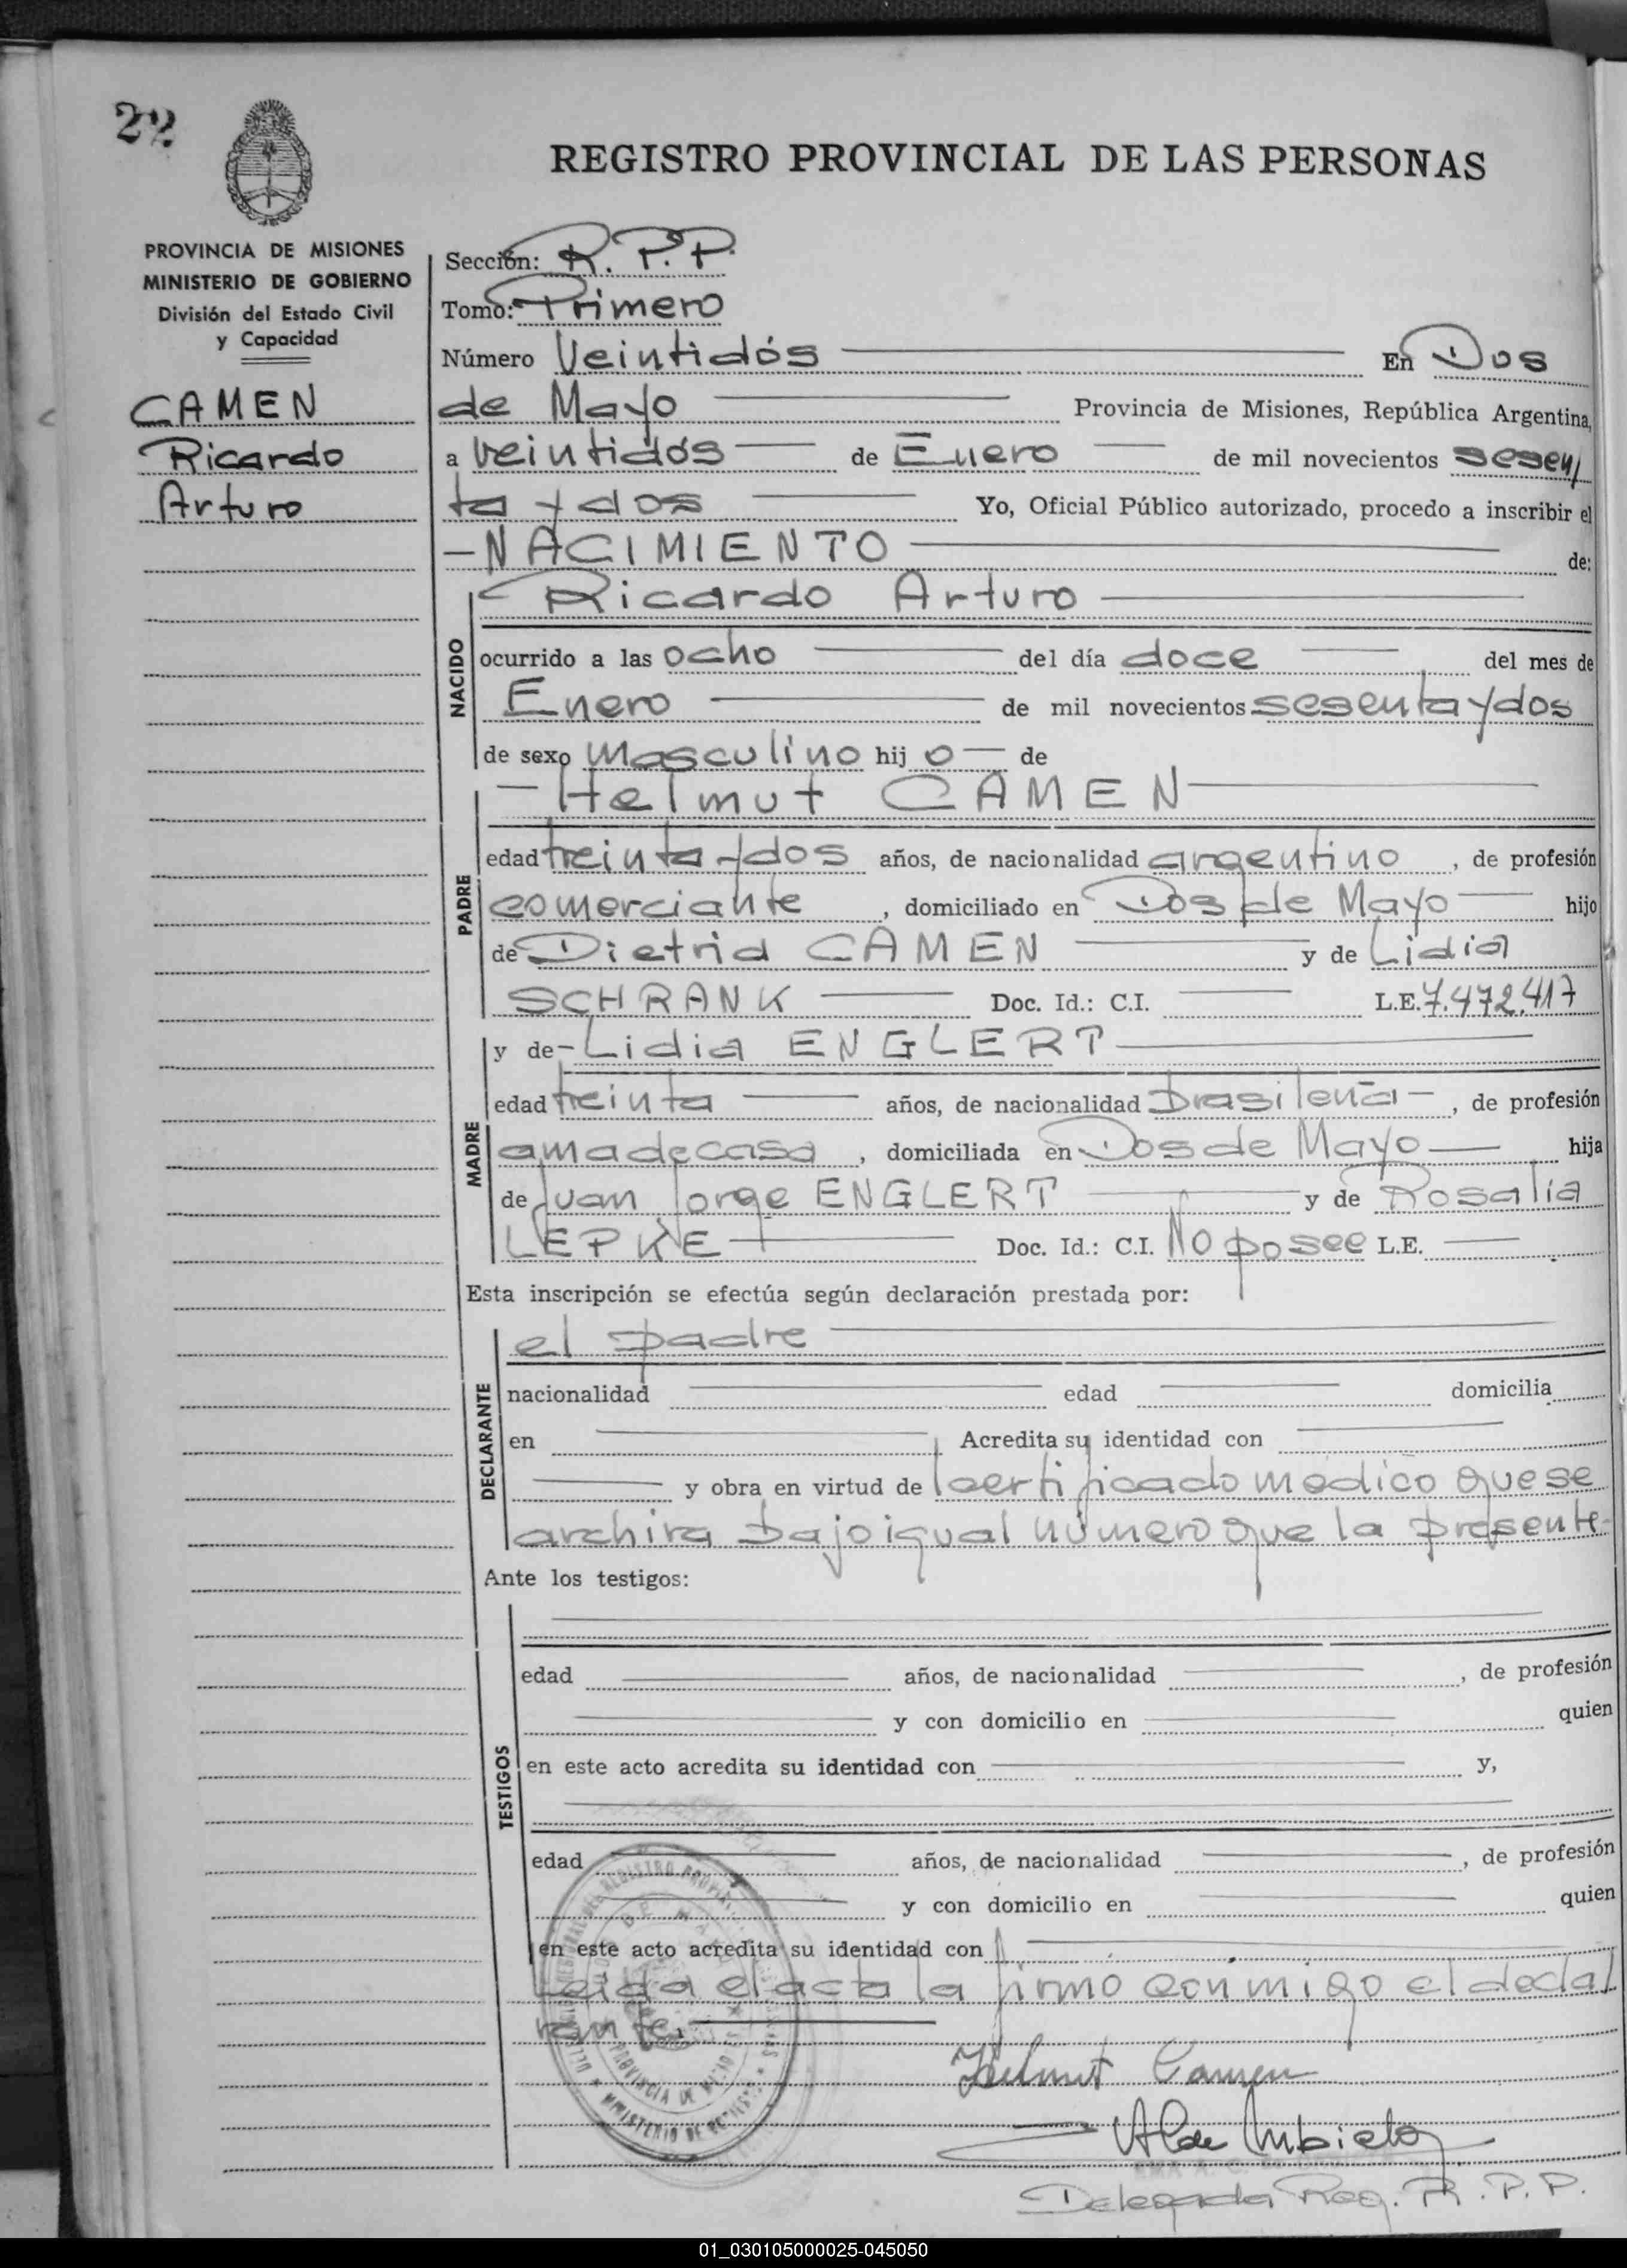 22
REGISTRO PROVINCIAL DE LAS PERSONAS
PROVINCIA DE MISIONES
MINISTERIO DE GOBIERNO
División del Estado Civil
y Capacidad
CAMEN
Ricardo
Arturo
Sección: R. P. P.
Tomo: Primero
Número Veintidós En Dos
de Mayo Provincia de Misiones, República Argentina,
a veintidós de Enero de mil novecientos sesen/
ta y dos Yo, Oficial Público autorizado, procedo a inscribir el
-NACIMIENTO de:
NACIDO
Ricardo Arturo
ocurrido a las ocho del día doce del mes de
Enero de mil novecientos sesenta y dos
de sexo masculino hij o de
PADRE
Helmut CAMEN
edad treinta y dos años, de nacionalidad argentino, de profesión
comerciante, domiciliado en Dos de Mayo hijo
de Dietrid CAMEN y de Lidia
SCHRANK Doc. Id.: C.I. L.E. 7.472.417
MADRE
y de- Lidia ENGLERT
edad treinta años, de nacionalidad brasileña-, de profesión
ama de casa, domiciliada en Dos de Mayo hija
de Juan Jorge ENGLERT y de Rosalía
LEPKE Doc. Id.: C.I. No posee L.E.
Esta inscripción se efectúa según declaración prestada por:
DECLARANTE
el padre
nacionalidad edad domicilia
en Acredita su identidad con
y obra en virtud de certificado medico que se
archiva bajo igual número que la presente-
Ante los testigos:
TESTIGOS
edad años, de nacionalidad , de profesión
y con domicilio en quien
en este acto acredita su identidad con y,
edad años, de nacionalidad , de profesión
y con domicilio en quien
en este acto acredita su identidad con
Leida el acta la firmó conmigo el declal
rante.
Helmut Camen
Delegada Reg. R. P. P.
PROVINCIA DE MISIONES
MINISTERIO DE GOBIERNO
01_030105000025-045050